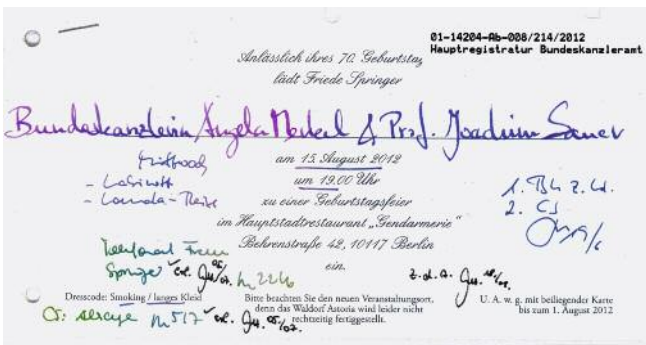 01-14204-Ab-008/214/2012
Hauptregistratur Bundeskanzleramt
Anlässlich ihres 70. Geburtstag
lädt Friede Springer
Bundeskanzlerin Angela Merkel & Prof. Joachim Sauer
Mittwoch
am 15. August 2012
- Kabinett
um 19.00 Uhr
- Kanada-Reise
zu einer Geburtstagsfeier
1. Bk z. K.
2. CS
im Hauptstadtrestaurant „Gendarmerie“
Behrenstraße 42, 10117 Berlin
Telefonat Frau
Springer
ein.
z.d.A.
Dresscode: Smoking / langes Kleid
Bitte beachten Sie den neuen Veranstaltungsort,
denn das Waldorf Astoria wird leider nicht
rechtzeitig fertiggestellt.
U. A. w. g. mit beiliegender Karte
bis zum 1. August 2012
CS: Absage